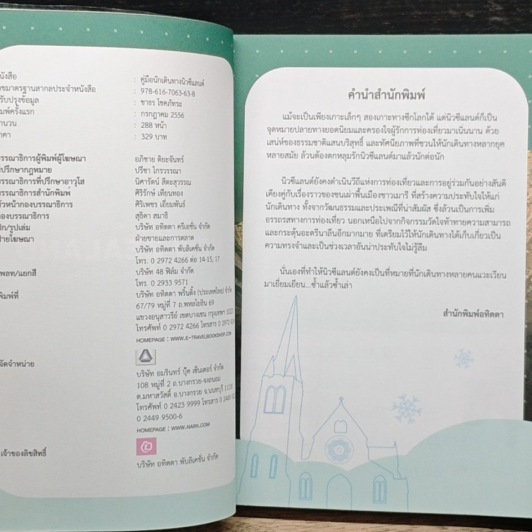 นังสือ : คู่มือนักเดินทางนิวซีแลนด์
ขมาตรฐานสากลประจำหนังสือ : 978-616-7063-63-8
รับปรุงข้อมูล : ชาธร โชคภัทระ
มพ์ครั้งแรก : กรกฎาคม 2556
านวน : 288 หน้า
าคา : 329 บาท
รรณาธิการผู้พิมพ์ผู้โฆษณา : อภิชาย
ปรึกษากฎหมาย : ปรีชา ไกรวรรณ
รรณาธิการที่ปรึกษาอาวุโส : นิศารัตน์
รรณาธิการสำนักพิมพ์ : ศิริรักษ์ เทียนทอง
ัวหน้ากองบรรณาธิการ : ศิริเพชร เอี่ยมพันธ์
องบรรณาธิการ : สุธิดา สมาธิ
ปก/รูปเล่ม : บริษัท อทิตตา ครีเอชั่น จำกัด
ฝ่ายโฆษณา : ฝ่ายขายและการตลาด
บริษัท อทิตตา พับลิเคชั่น จำกัด
โทร. 0 2972 4266 ต่อ 14-15, 17
พลท/แยกสี : บริษัท 48 ฟิล์ม จำกัด
โทร. 0 2933 9571
พิมพ์ที่ : บริษัท อทิตตา พริ้นติ้ง (ประเทศไทย) จำกัด
67/79 หมู่ที่ 7 ถ.พหลโยธิน 69
แขวงอนุสาวรีย์ เขตบางเขน กรุงเทพฯ
โทรศัพท์ 0 2972 4266 โทรสาร
HOMEPAGE : WWW.E-TRAVELBOOKSHOP.CO
จัดจำหน่าย
บริษัท อมรินทร์ บุ๊ค เซ็นเตอร์ จำกัด
108 หมู่ที่ 2 ถ.บางกรวย-จงถนอม
ต.มหาสวัสดิ์ อ.บางกรวย จ.นนทบุรี
โทรศัพท์ 0 2423 9999 โทรสาร
0 2449 9500-6
HOMEPAGE : WWW.NAIIN.COM
เจ้าของลิขสิทธิ์
บริษัท อทิตตา พับลิเคชั่น จำกัด
คำนำสำนักพิมพ์
แม้จะเป็นเพียงเกาะเล็กๆ สองเกาะทางซีกโลกใต้ แต่นิวซีแลนด์ก็เป็น
จุดหมายปลายทางยอดนิยมและครองใจผู้รักการท่องเที่ยวมาเนิ่นนาน ด้วย
เสน่ห์ของธรรมชาติแสนบริสุทธิ์ และทัศนียภาพที่ชวนให้นักเดินทางหลายยุค
หลายสมัย ล้วนต้องตกหลุมรักนิวซีแลนด์มาแล้วนักต่อนัก
นิวซีแลนด์ยังคงดำเนินวิถีแห่งการท่องเที่ยวและการอยู่ร่วมกันอย่างสันติ
เคียงคู่กับเรื่องราวของชนเผ่าพื้นเมืองชาวเมารี ที่สร้างความประทับใจให้แก่
นักเดินทาง ทั้งจากวัฒนธรรมและประเพณีที่น่าสัมผัส ซึ่งล้วนเป็นการเพิ่ม
อรรถรสทางการท่องเที่ยว นอกเหนือไปจากกิจกรรมวัดใจท้าทายความสามารถ
และกระตุ้นอะดรีนาลีนอีกมากมาย ที่เตรียมไว้ให้นักเดินทางได้เก็บเกี่ยวเป็น
ความทรงจำและเป็นช่วงเวลาอันน่าประทับใจไม่รู้ลืม
นั่นเองที่ทำให้นิวซีแลนด์ยังคงเป็นที่หมายที่นักเดินทางหลายคนแวะเวียน
มาเยี่ยมเยือน...ซ้ำแล้วซ้ำเล่า
สำนักพิมพ์อทิตตา